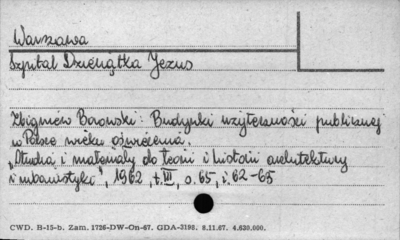 Warszawa
Szpital Dzieciątka Jezus
Zbigniew Borowski: Budynki użyteczności publicznej
w Polsce wieku oświecenia.
„Studia i materiały do teorii i historii architektury
i urbanistyki", 1962, t. III, s. 65, i. 62-65
CWD. H-15-b. Zam. 1726-DW-On-67. GDA-3198. 8.11.67. 4.630.000.